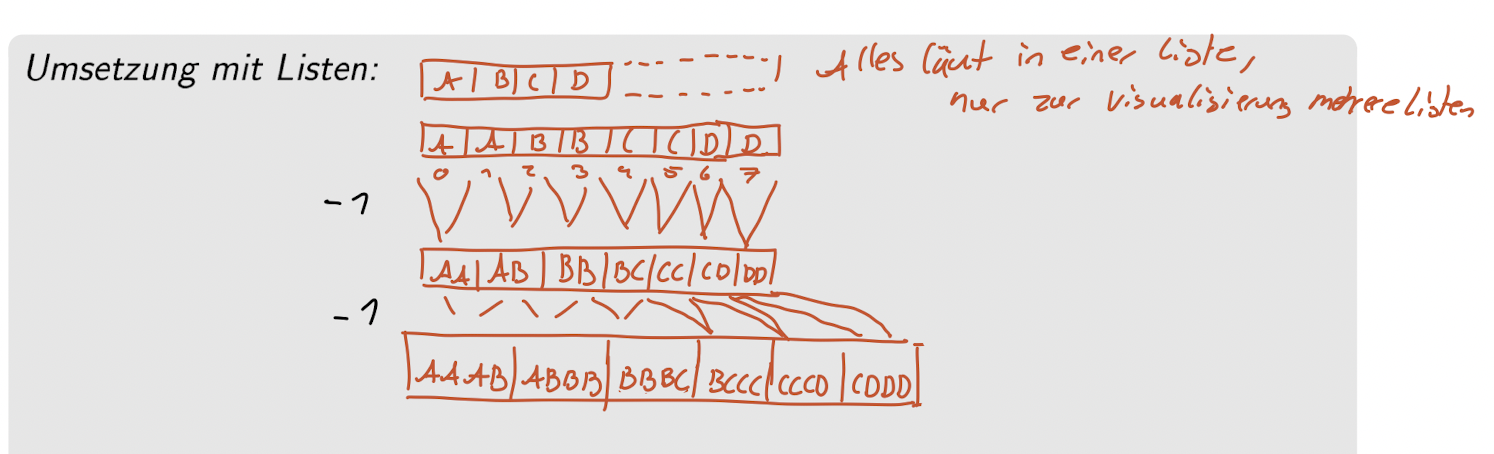 Umsetzung mit Listen:
A B C D
Alles läut in einer Liste,
nur zur Visualisierung mehrere Listen
A A B B C C D D
0 1 2 3 4 5 6 7
-1
AA AB BB BC CC CD DD
-1
AAAB ABBB BBBC BCCC CCCD CDDD